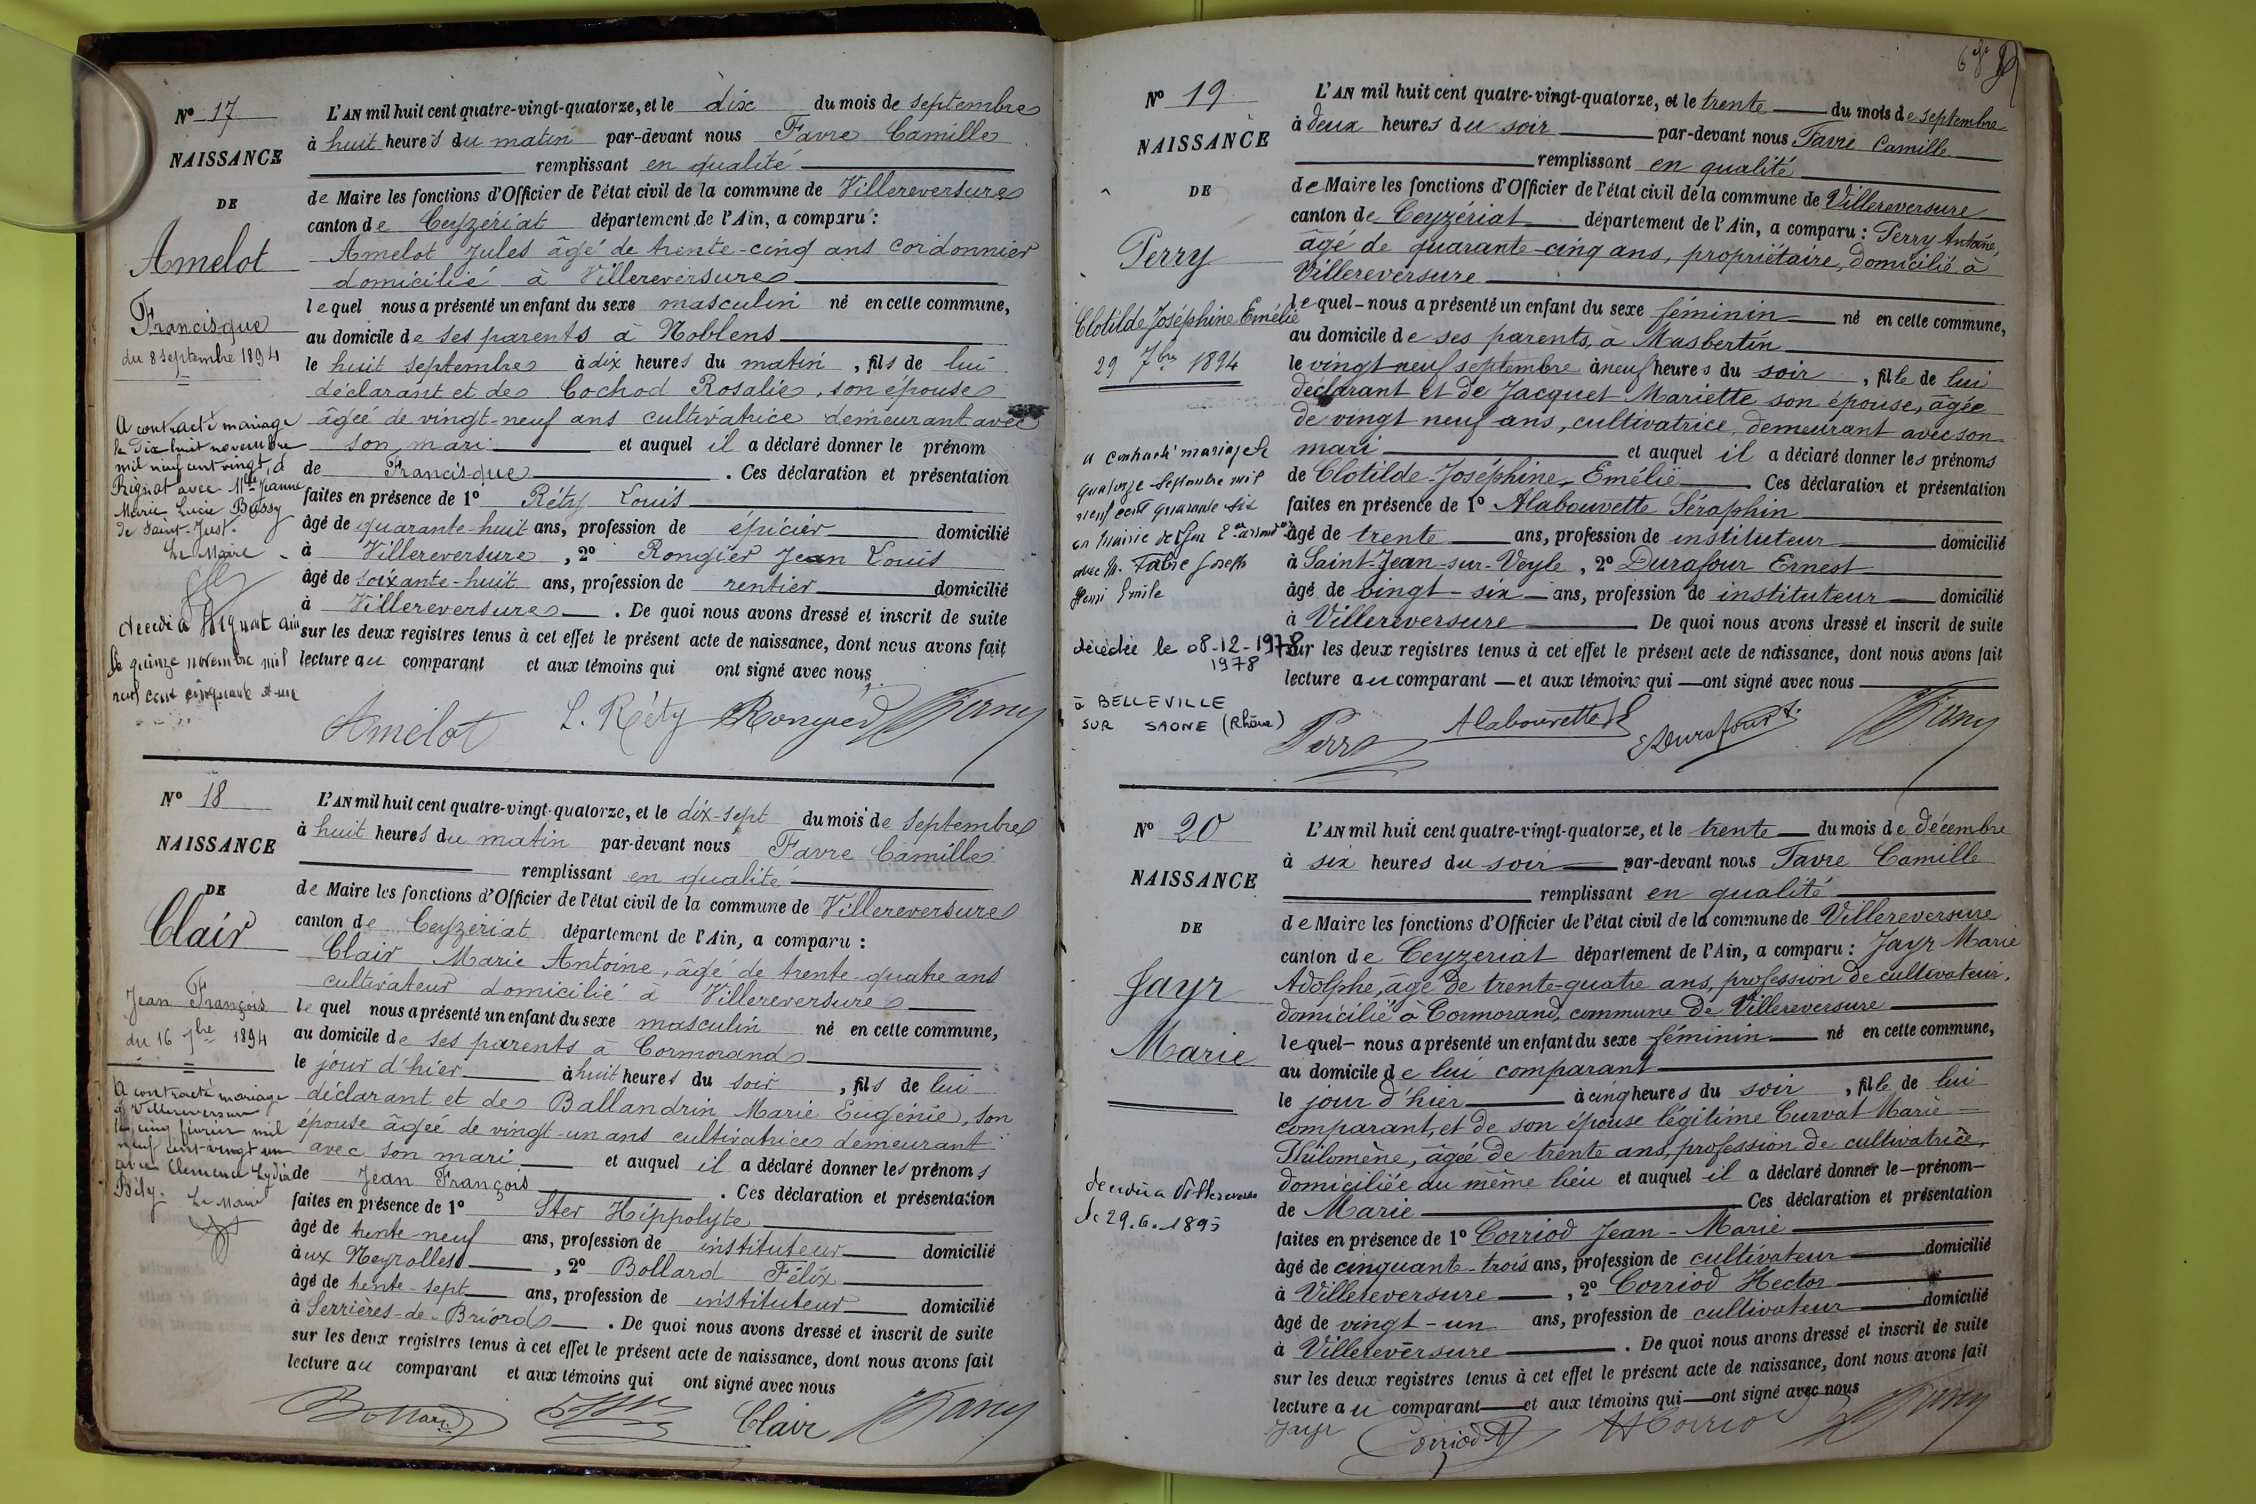 N° 17
NAISSANCE
DE
Amelot
Francisque
du 8 septembre 1894
A contracté mariage
le Dix huit novembre
mil neuf cent vingt, à
Rignat avec Mlle Jeanne
Marie Lucie Bassy
de Saint-Just.
Le Maire
décédé à Rignat Ain
Le quinze novembre mil
neuf cent cinquante et une
L'AN mil huit cent quatre-vingt-quatorze, et le dix du mois de septembre
à huit heures du matin par-devant nous Favre Camille
remplissant en qualité
de Maire les fonctions d'Officier de l'état civil de la commune de Villereversure
canton de Ceyzériat département de l'Ain, a comparu :
Amelot Jules âgé de trente-cinq ans cordonnier
domicilié à Villereversure
lequel nous a présenté un enfant du sexe masculin né en cette commune,
au domicile de ses parents à Noblens
le huit septembre à dix heures du matin, fils de lui
déclarant et de Cochod Rosalie, son épouse
âgée de vingt-neuf ans cultivatrice demeurant avec
son mari et auquel il a déclaré donner le prénom
de Francisque. Ces déclaration et présentation
faites en présence de 1° Réty Louis
âgé de quarante-huit ans, profession de épicier domicilié
à Villereversure, 2° Rongier Jean Louis
âgé de soixante-huit ans, profession de rentier domicilié
à Villereversure. De quoi nous avons dressé et inscrit de suite
sur les deux registres tenus à cet effet le présent acte de naissance, dont nous avons fait
lecture au comparant et aux témoins qui ont signé avec nous
Amelot L. Réty Rongier
N° 18
NAISSANCE
DE
Clair
Jean François
du 16 7bre 1894
A contracté mariage
à Villereversure
le cinq février mil
neuf cent vingt un
avec Clémence Lydia
Le Maire
L'AN mil huit cent quatre-vingt-quatorze, et le dix-sept du mois de septembre
à huit heures du matin par-devant nous Favre Camille
remplissant en qualité
de Maire les fonctions d'Officier de l'état civil de la commune de Villereversure
canton de Ceyzériat département de l'Ain, a comparu :
Clair Marie Antoine, âgé de trente-quatre ans
cultivateur domicilié à Villereversure
lequel nous a présenté un enfant du sexe masculin né en cette commune,
au domicile de ses parents à Cormorand
le jour d'hier à huit heures du soir, fils de lui
déclarant et de Ballandrin Marie Eugénie, son
épouse âgée de vingt-un ans cultivatrice demeurant
avec son mari et auquel il a déclaré donner les prénoms
de Jean François. Ces déclaration et présentation
faites en présence de 1° Ster Hippolyte
âgé de trente-neuf ans, profession de instituteur domicilié
aux Neyrolles, 2° Bollard Félix
âgé de trente-sept ans, profession de instituteur domicilié
à Serrières-de-Briord. De quoi nous avons dressé et inscrit de suite
sur les deux registres tenus à cet effet le présent acte de naissance, dont nous avons fait
lecture au comparant et aux témoins qui ont signé avec nous
Bollard Clair
N° 19
NAISSANCE
DE
Perry
Clotilde Joséphine Emélie
29 7bre 1894
a contracté mariage le
quatorze Septembre mil
neuf cent quarante six
en mairie de Lyon 2e arrondt
avec M. Fabre Joseph
Henri Emile
décédée le 08-12-1978
1978
à BELLEVILLE
SUR SAONE (Rhône)
L'AN mil huit cent quatre-vingt-quatorze, et le trente du mois de septembre
à deux heures du soir par-devant nous Favre Camille
remplissant en qualité
de Maire les fonctions d'Officier de l'état civil de la commune de Villereversure
canton de Ceyzériat département de l'Ain, a comparu : Perry Antoine,
âgé de quarante-cinq ans, propriétaire, domicilié à
Villereversure
lequel nous a présenté un enfant du sexe féminin né en cette commune,
au domicile de ses parents, à Masbertin
le vingt-neuf septembre à neuf heures du soir, fille de lui
déclarant et de Jacquet Mariette son épouse, âgée
de vingt neuf ans, cultivatrice, demeurant avec son
mari et auquel il a déclaré donner les prénoms
de Clotilde-Joséphine-Emélie Ces déclaration et présentation
faites en présence de 1° Alabouvette Séraphin
âgé de trente ans, profession de instituteur domicilié
à Saint-Jean-sur-Veyle, 2° Durafour Ernest
âgé de vingt-six ans, profession de instituteur domicilié
à Villereversure De quoi nous avons dressé et inscrit de suite
sur les deux registres tenus à cet effet le présent acte de naissance, dont nous avons fait
lecture au comparant et aux témoins qui ont signé avec nous
Perry Alabouvette S E Durafour
N° 20
NAISSANCE
DE
Jayr
Marie
décédée à Villereversure
le 29.6.1895
L'AN mil huit cent quatre-vingt-quatorze, et le trente du mois de décembre
à six heures du soir par-devant nous Favre Camille
remplissant en qualité
de Maire les fonctions d'Officier de l'état civil de la commune de Villereversure
canton de Ceyzeriat département de l'Ain, a comparu : Jayr Marie
Adolphe, âgé de trente-quatre ans, profession de cultivateur,
domicilié à Cormorand, commune de Villereversure
lequel nous a présenté un enfant du sexe féminin né en cette commune,
au domicile de lui comparant
le jour d'hier à cinq heures du soir, fille de lui
comparant, et de son épouse légitime Curvat Marie-
Philomène, âgée de trente ans, profession de cultivatrice,
domiciliée au même lieu et auquel il a déclaré donner le prénom
de Marie Ces déclaration et présentation
faites en présence de 1° Corriod Jean-Marie
âgé de cinquante-trois ans, profession de cultivateur domicilié
à Villereversure, 2° Corriod Hector
âgé de vingt-un ans, profession de cultivateur domicilié
à Villereversure. De quoi nous avons dressé et inscrit de suite
sur les deux registres tenus à cet effet le présent acte de naissance, dont nous avons fait
lecture au comparant et aux témoins qui ont signé avec nous
Jayr Corriod H Corriod